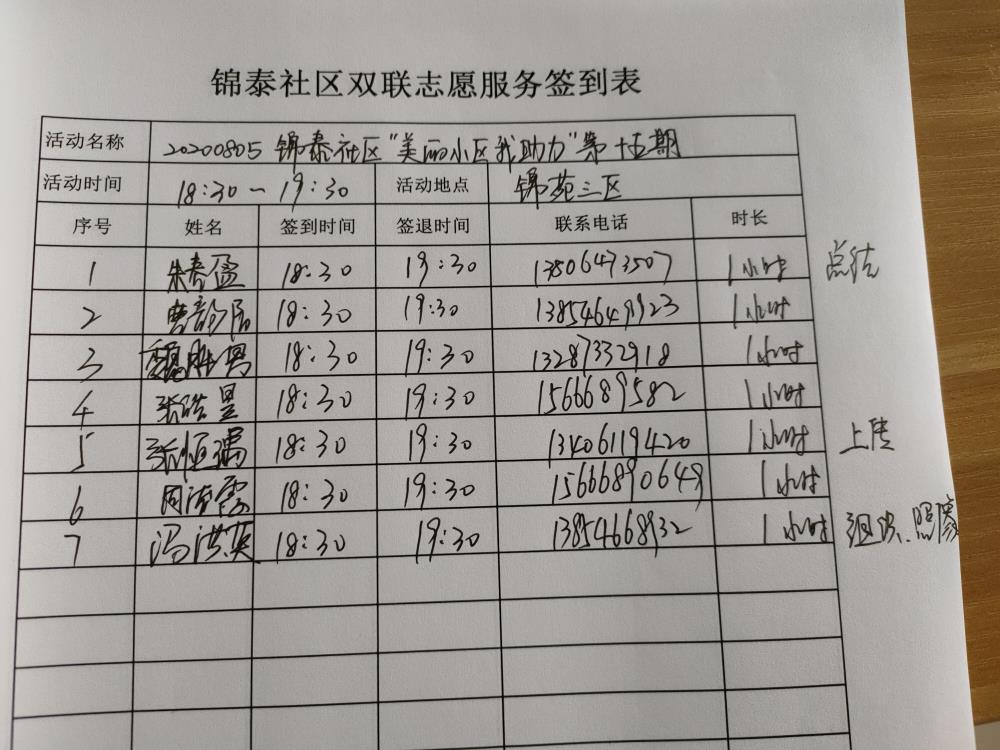 锦泰社区双联志愿服务签到表
活动名称 20200805 锦泰社区"美丽小区我助力"第十五期
活动时间 18:30 - 19:30 活动地点 锦苑三区
序号 姓名 签到时间 签退时间 联系电话 时长
1 朱春盈 18:30 19:30 13806473507 1小时 总结
2 曹韵居 18:30 19:30 13854649923 1小时
3 18:30 19:30 13287332918 1小时
4 张皓昱 18:30 19:30 1566689582 1小时
5 18:30 19:30 13406119420 1小时 上传
6 18:30 19:30 15666890649 1小时
7 冯洪英 18:30 19:30 13854668932 1小时 组织.照像